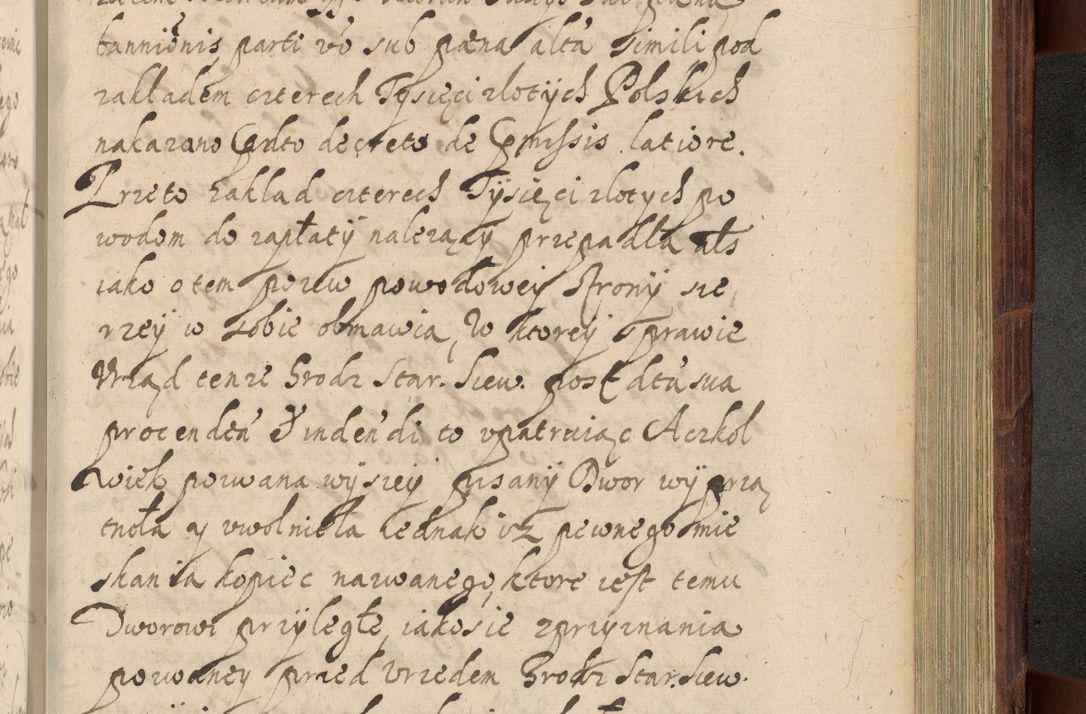 bannionis parti vo sub pæna alta simili pod
zakładem czterech Tysięci złotych Polskich
nakazano Endto decreto de Præmissis latiore.
Przeto zakład czterech Tysięci złotych po
wodom do zapłaty należący przepadła als
iako o tem pozew powodowey Strony sze
rzey w sobie obmawia, W ktorey sprawie
Urząd tenze Grodz Star. Siew. post dta sua
procendtn et indendi to upatruiąc Aczkol
wiek pozwana wyszey pisany Dwor wyprzą
tnoła y uwolnieła Iednak iż pewnego mie
skania kopiec nazwanego, ktore iest temu
Dworowi przyległe iakosie zprzyznania
pozwaney przed Urzedem Grodz Star. Siew.